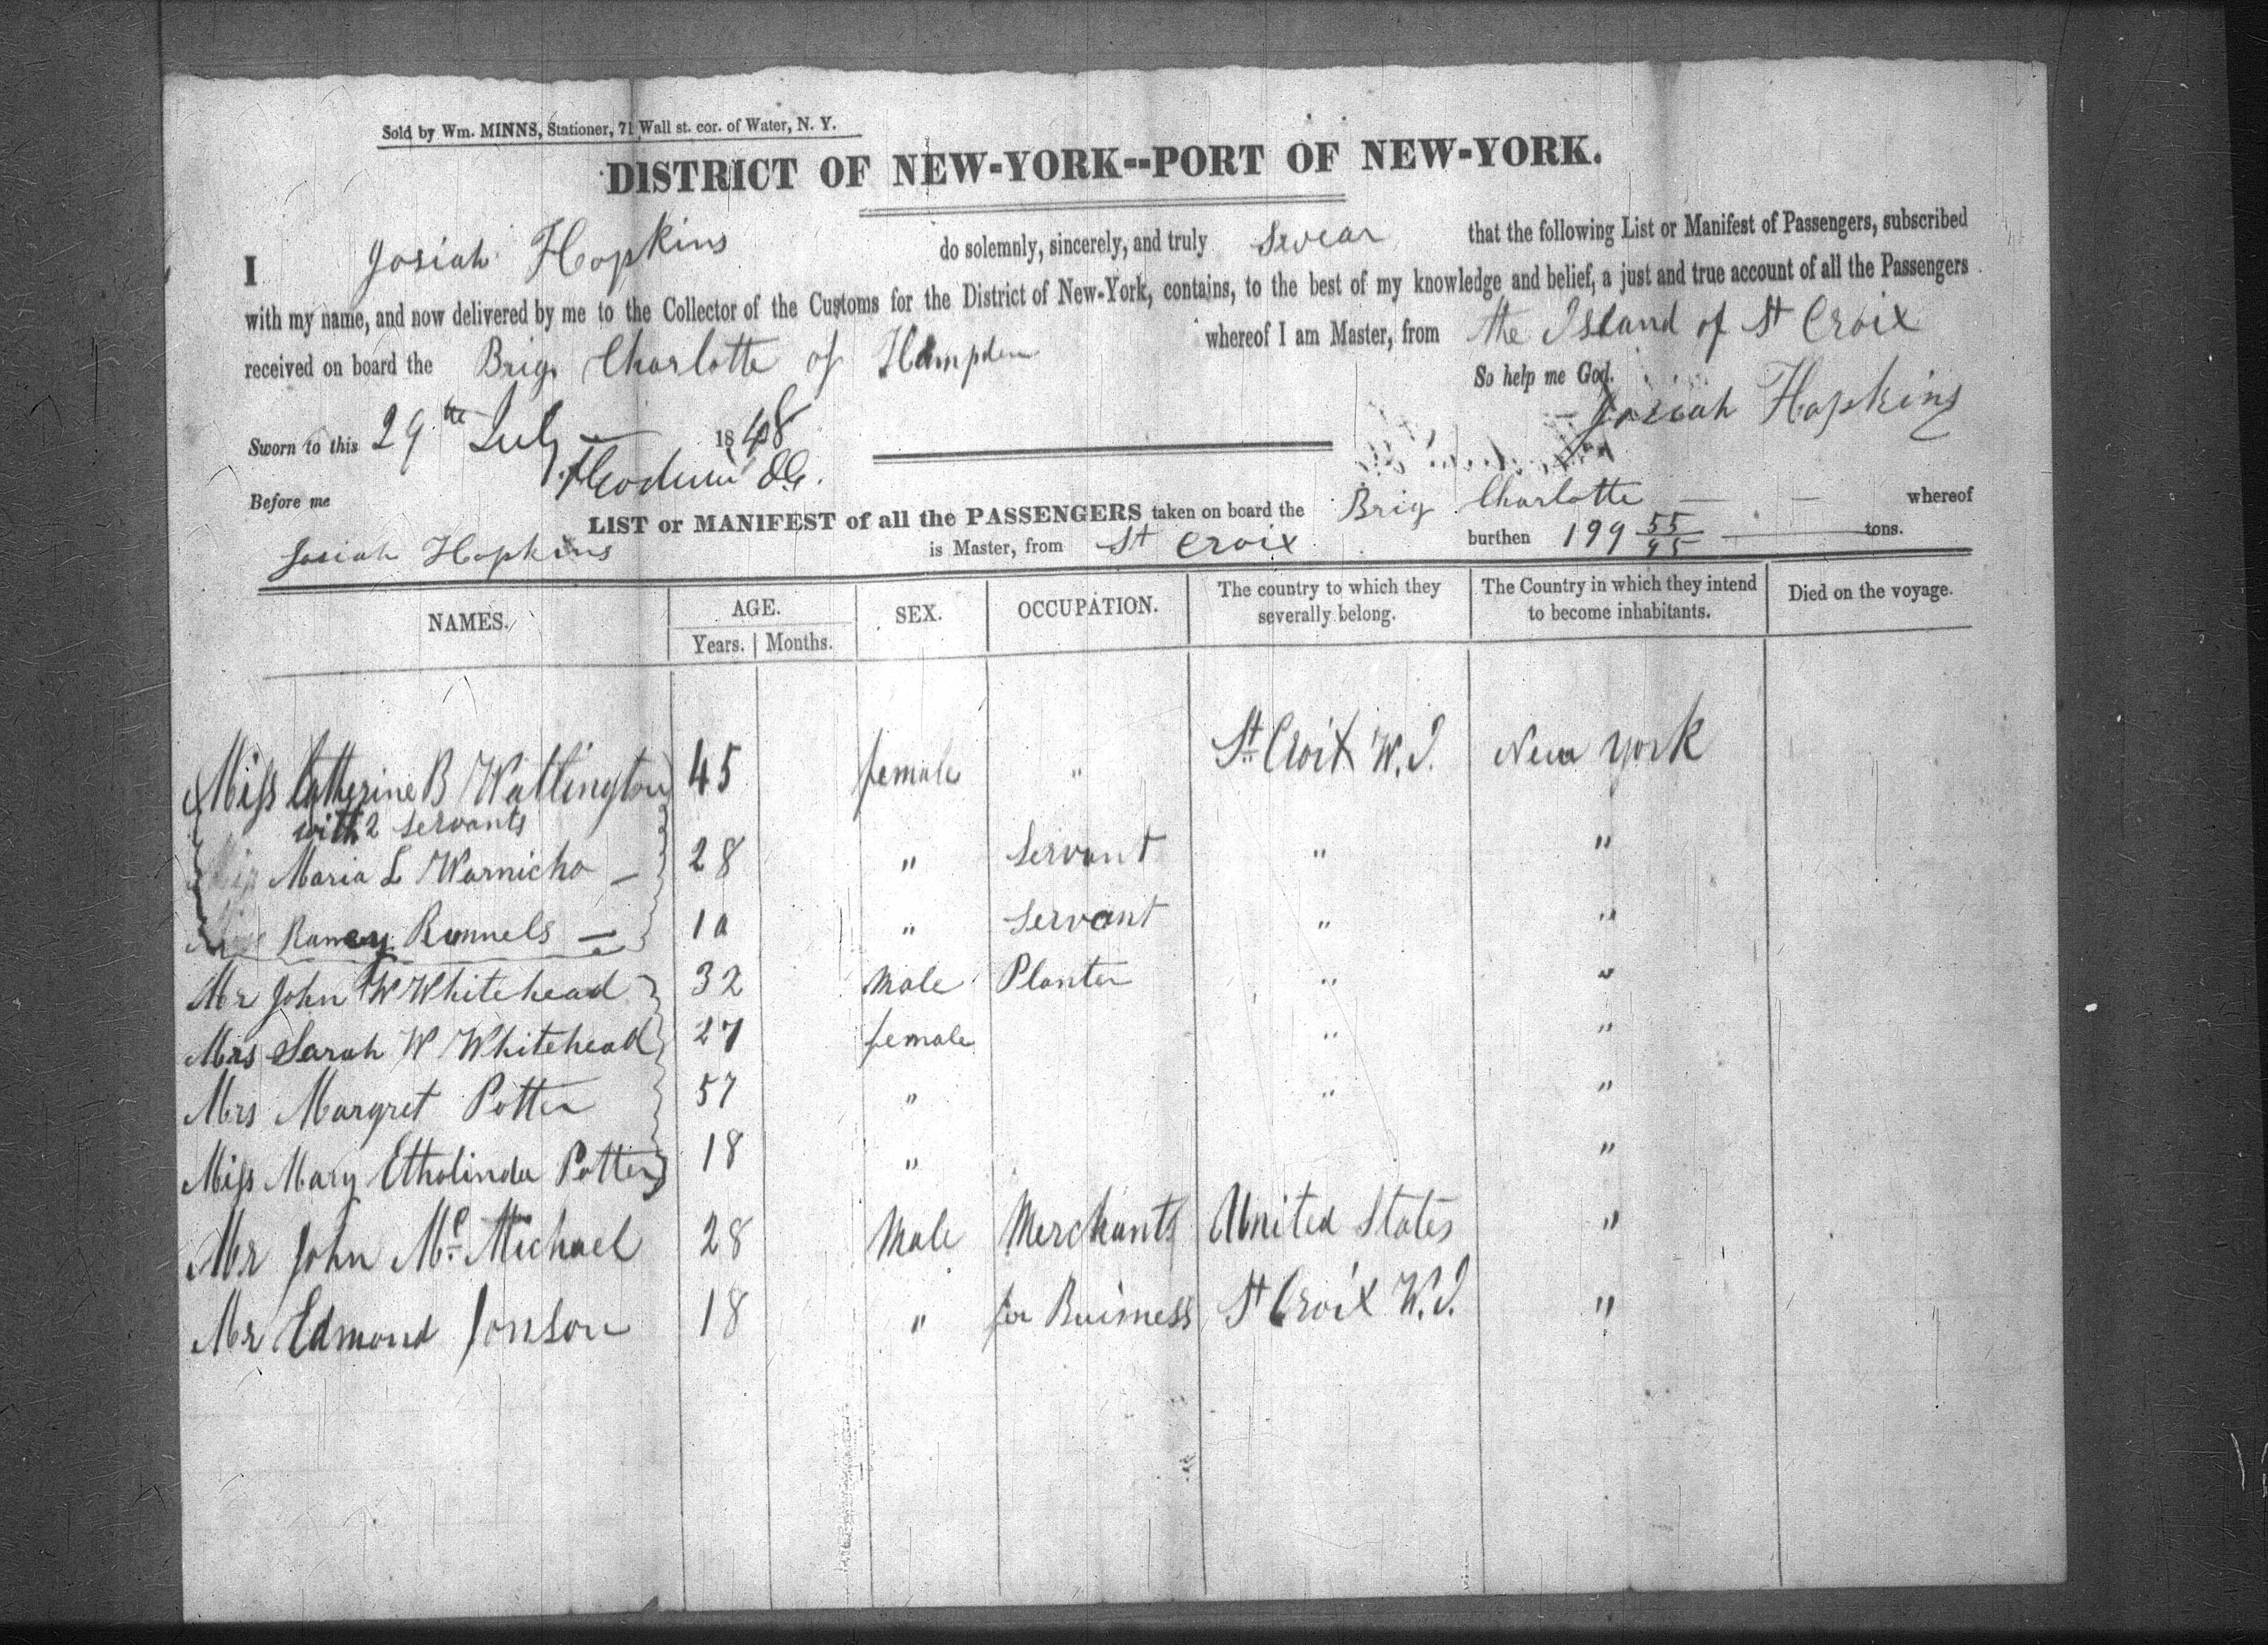 Sold by Wm. MINNS, Stationer, 71 Wall st. cor. of Water, N. Y.
DISTRICT OF NEW-YORK--PORT OF NEW-YORK.
I Josiah Hopkins do solemnly, sincerely, and truly Swear that the following List or Manifest of Passengers, subscribed
with my name, and now delivered by me to the Collector of the Customs for the District of New-York, contains, to the best of my knowledge and belief, a just and true account of all the Passengers
received on board the Brig Charlotte of Hampden whereof I am Master, from the Island of St Croix
So help me God.
Sworn to this 29th July 1848 Josiah Hopkins
Before me
LIST or MANIFEST of all the PASSENGERS taken on board the Brig Charlotte whereof
Josiah Hopkins is Master, from St Croix burthen 199 55/95 tons.
NAMES. AGE. Years. Months. SEX. OCCUPATION. The country to which they severally belong. The Country in which they intend to become inhabitants. Died on the voyage.
Miss Catherine B Watlington 45 female " St Croix W.I. New York
with 2 servants
Maria L Warnicho 28 " Servant " "
Runnels 10 " Servant " "
Mr John W Whitehead 32 male Planter " "
Mrs Sarah W Whitehead 27 female " "
Mrs Margret Potter 57 " " "
Miss Mary Etholinda Potter 18 " "
Mr John Mc Michael 28 Male Merchants United States "
Mr Edmond Jonson 18 " for Buisness St Croix W.I. "